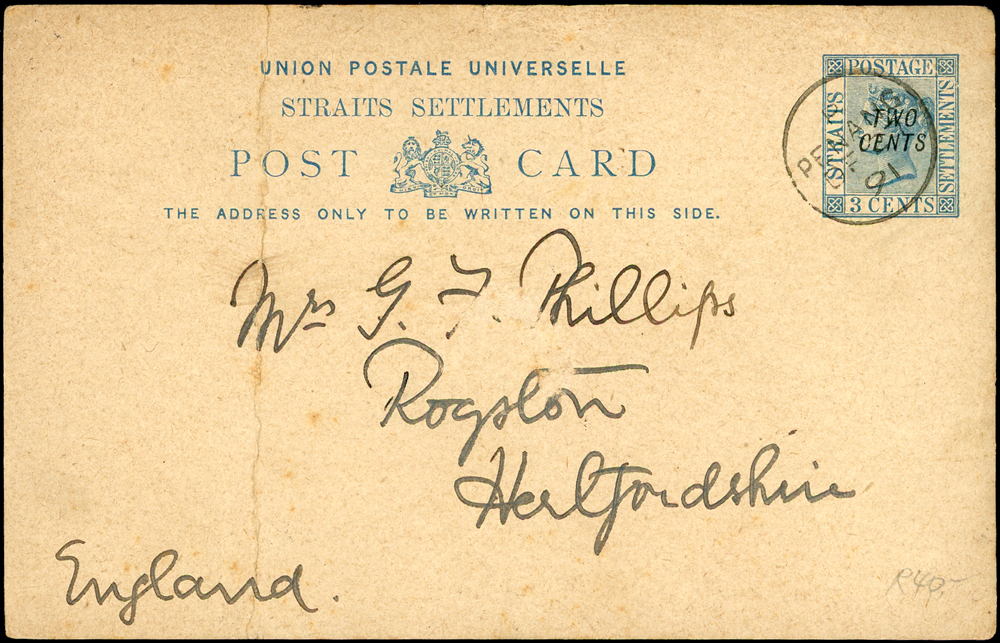 UNION POSTALE UNIVERSELLE
STRAITS SETTLEMENTS
POST CARD
THE ADDRESS ONLY TO BE WRITTEN ON THIS SIDE.
POSTAGE
STRAITS
SETTLEMENTS
TWO
CENTS
3 CENTS
PENANG
91
Mrs G. F. Phillips
Rogston
Hertfordshire
England.
R40.-